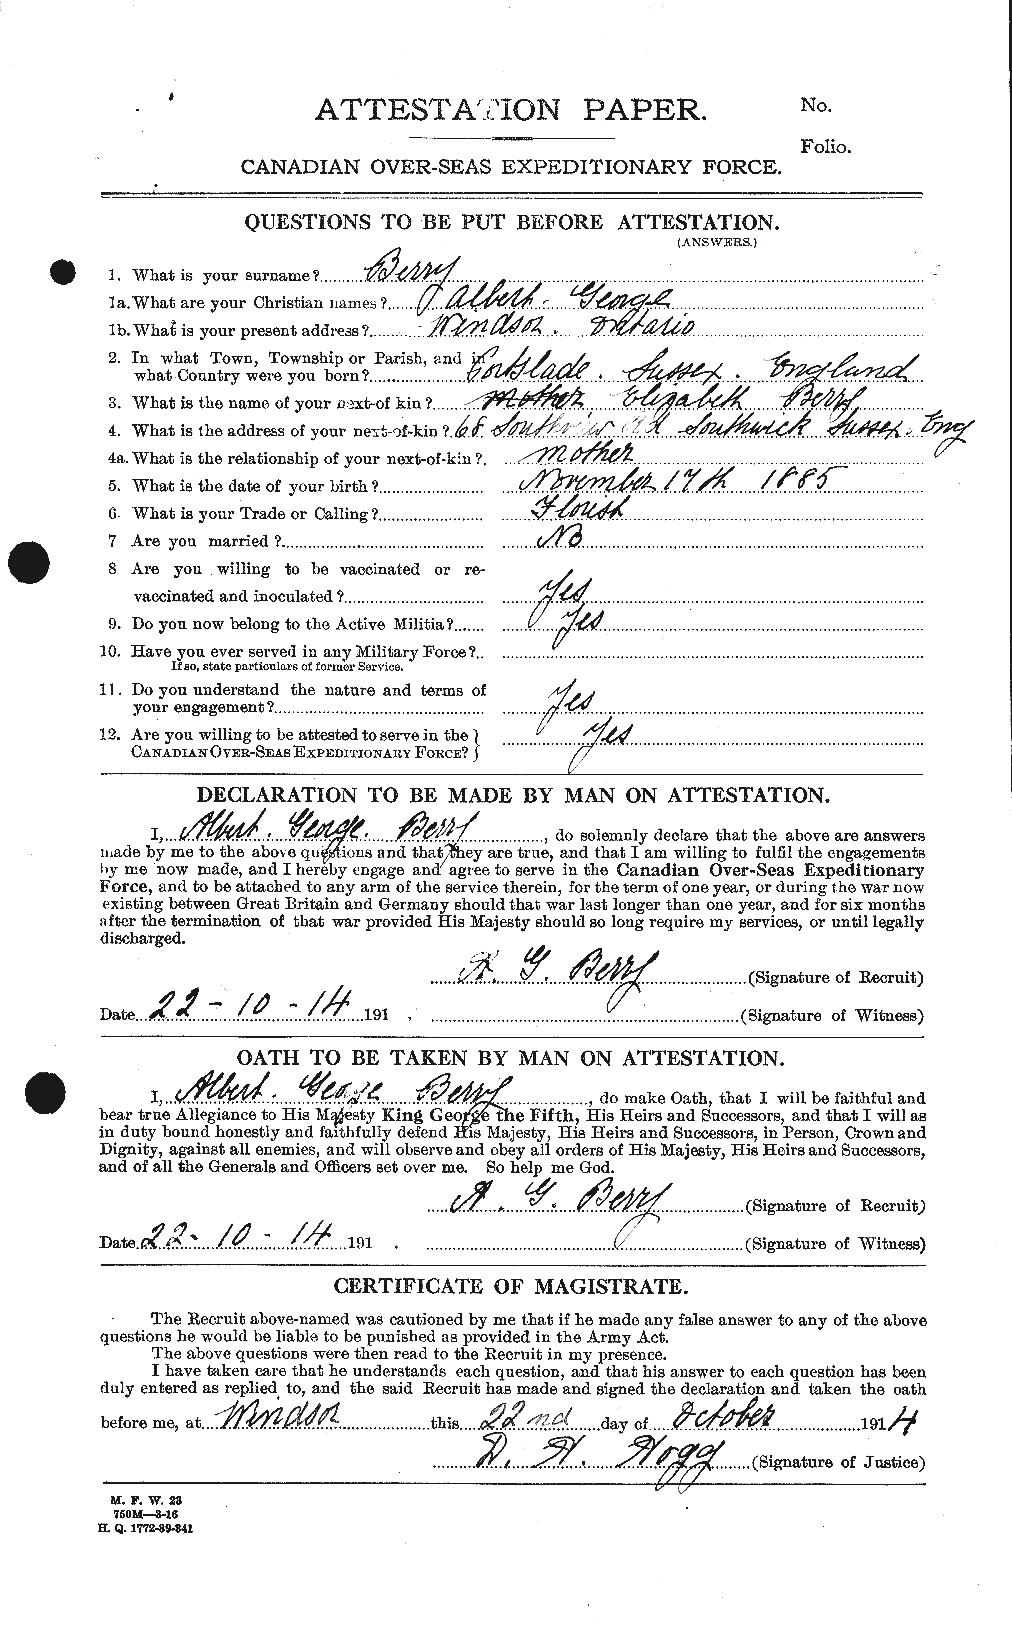 ATTESTATION PAPER.
No.
Folio.
CANADIAN OVER-SEAS EXPEDITIONARY FORCE.
QUESTIONS TO BE PUT BEFORE ATTESTATION.
(ANSWERS.)
1. What is your surname? Berry
1a. What are your Christian names? Albert. George
1b. What is your present address? Windsor. Ontario
2. In what Town, Township or Parish, and in
what Country were you born? Portslade. Sussex. England
3. What is the name of your next-of kin? Mother, Elizabeth Berry
4. What is the address of your next-of-kin? 68 Southview Rd Southwick Sussex. Eng
4a. What is the relationship of your next-of-kin? Mother
5. What is the date of your birth? November 17th 1885
6. What is your Trade or Calling? Florist
7 Are you married? No
8 Are you willing to be vaccinated or re-
vaccinated and inoculated? Yes
9. Do you now belong to the Active Militia? Yes
10. Have you ever served in any Military Force?
If so, state particulars of former Service.
11. Do you understand the nature and terms of
your engagement? Yes
12. Are you willing to be attested to serve in the
CANADIAN OVER-SEAS EXPEDITIONARY FORCE? Yes
DECLARATION TO BE MADE BY MAN ON ATTESTATION.
I, Albert. George. Berry, do solemnly declare that the above are answers
made by me to the above questions and that they are true, and that I am willing to fulfil the engagements
by me now made, and I hereby engage and agree to serve in the Canadian Over-Seas Expeditionary
Force, and to be attached to any arm of the service therein, for the term of one year, or during the war now
existing between Great Britain and Germany should that war last longer than one year, and for six months
after the termination of that war provided His Majesty should so long require my services, or until legally
discharged.
A. G. Berry (Signature of Recruit)
Date 22-10-14 191 . (Signature of Witness)
OATH TO BE TAKEN BY MAN ON ATTESTATION.
I, Albert. George Berry, do make Oath, that I will be faithful and
bear true Allegiance to His Majesty King George the Fifth, His Heirs and Successors, and that I will as
in duty bound honestly and faithfully defend His Majesty, His Heirs and Successors, in Person, Crown and
Dignity, against all enemies, and will observe and obey all orders of His Majesty, His Heirs and Successors,
and of all the Generals and Officers set over me. So help me God.
A. G. Berry (Signature of Recruit)
Date 22-10-14 191 . (Signature of Witness)
CERTIFICATE OF MAGISTRATE.
The Recruit above-named was cautioned by me that if he made any false answer to any of the above
questions he would be liable to be punished as provided in the Army Act.
The above questions were then read to the Recruit in my presence.
I have taken care that he understands each question, and that his answer to each question has been
duly entered as replied to, and the said Recruit has made and signed the declaration and taken the oath
before me, at Windsor this 22nd day of October 1914
D. H. Hogg (Signature of Justice)
M. F. W. 23
750M—3-16
H. Q. 1772-39-841